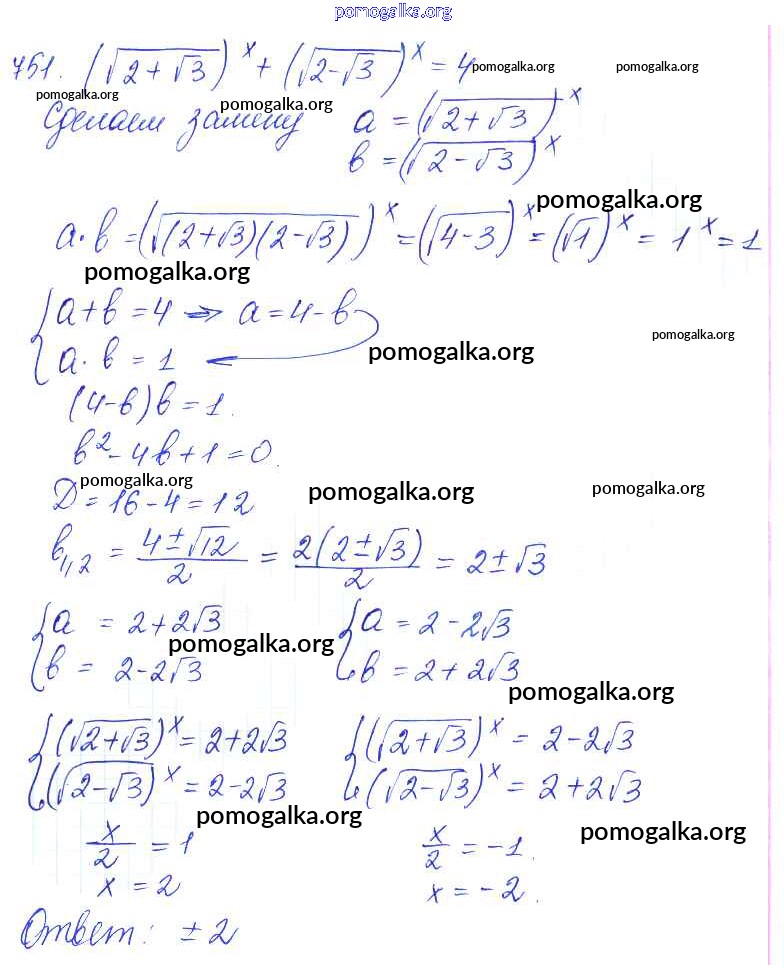 pomogalka.org
751. (√(2+√3))^x + (√(2-√3))^x = 4 pomogalka.org pomogalka.org
pomogalka.org pomogalka.org
Сделаем замену a = (√(2+√3))^x
b = (√(2-√3))^x
pomogalka.org
a·b = (√((2+√3)(2-√3)))^x = (√(4-3))^x = (√1)^x = 1^x = 1
pomogalka.org
{ a+b = 4 => a = 4-b
pomogalka.org
a·b = 1 pomogalka.org
(4-b)b = 1.
b² - 4b + 1 = 0.
pomogalka.org pomogalka.org pomogalka.org
D = 16 - 4 = 12
b1,2 = (4±√12)/2 = 2(2±√3)/2 = 2±√3
{ a = 2+2√3 { a = 2-2√3
pomogalka.org
b = 2-2√3 b = 2+2√3
pomogalka.org
{ (√(2+√3))^x = 2+2√3 { (√(2+√3))^x = 2-2√3
(√(2-√3))^x = 2-2√3 (√(2-√3))^x = 2+2√3
pomogalka.org pomogalka.org
x/2 = 1 x/2 = -1.
x = 2 x = -2.
Ответ: ±2